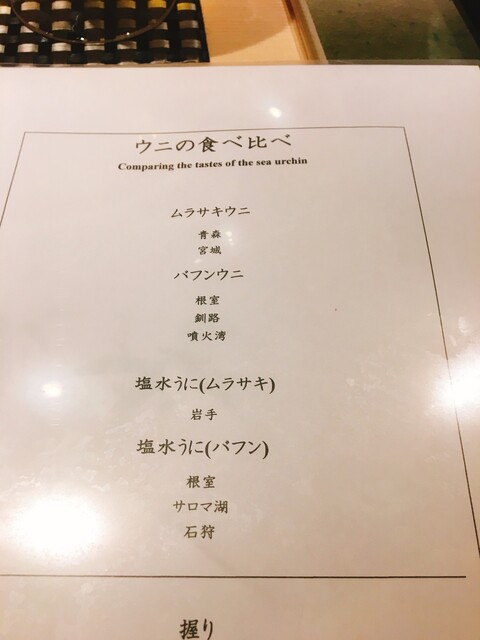 ウニの食べ比べ
Comparing the tastes of the sea urchin
ムラサキウニ
青森
宮城
バフンウニ
根室
釧路
噴火湾
塩水うに(ムラサキ)
岩手
塩水うに(バフン)
根室
サロマ湖
石狩
握り